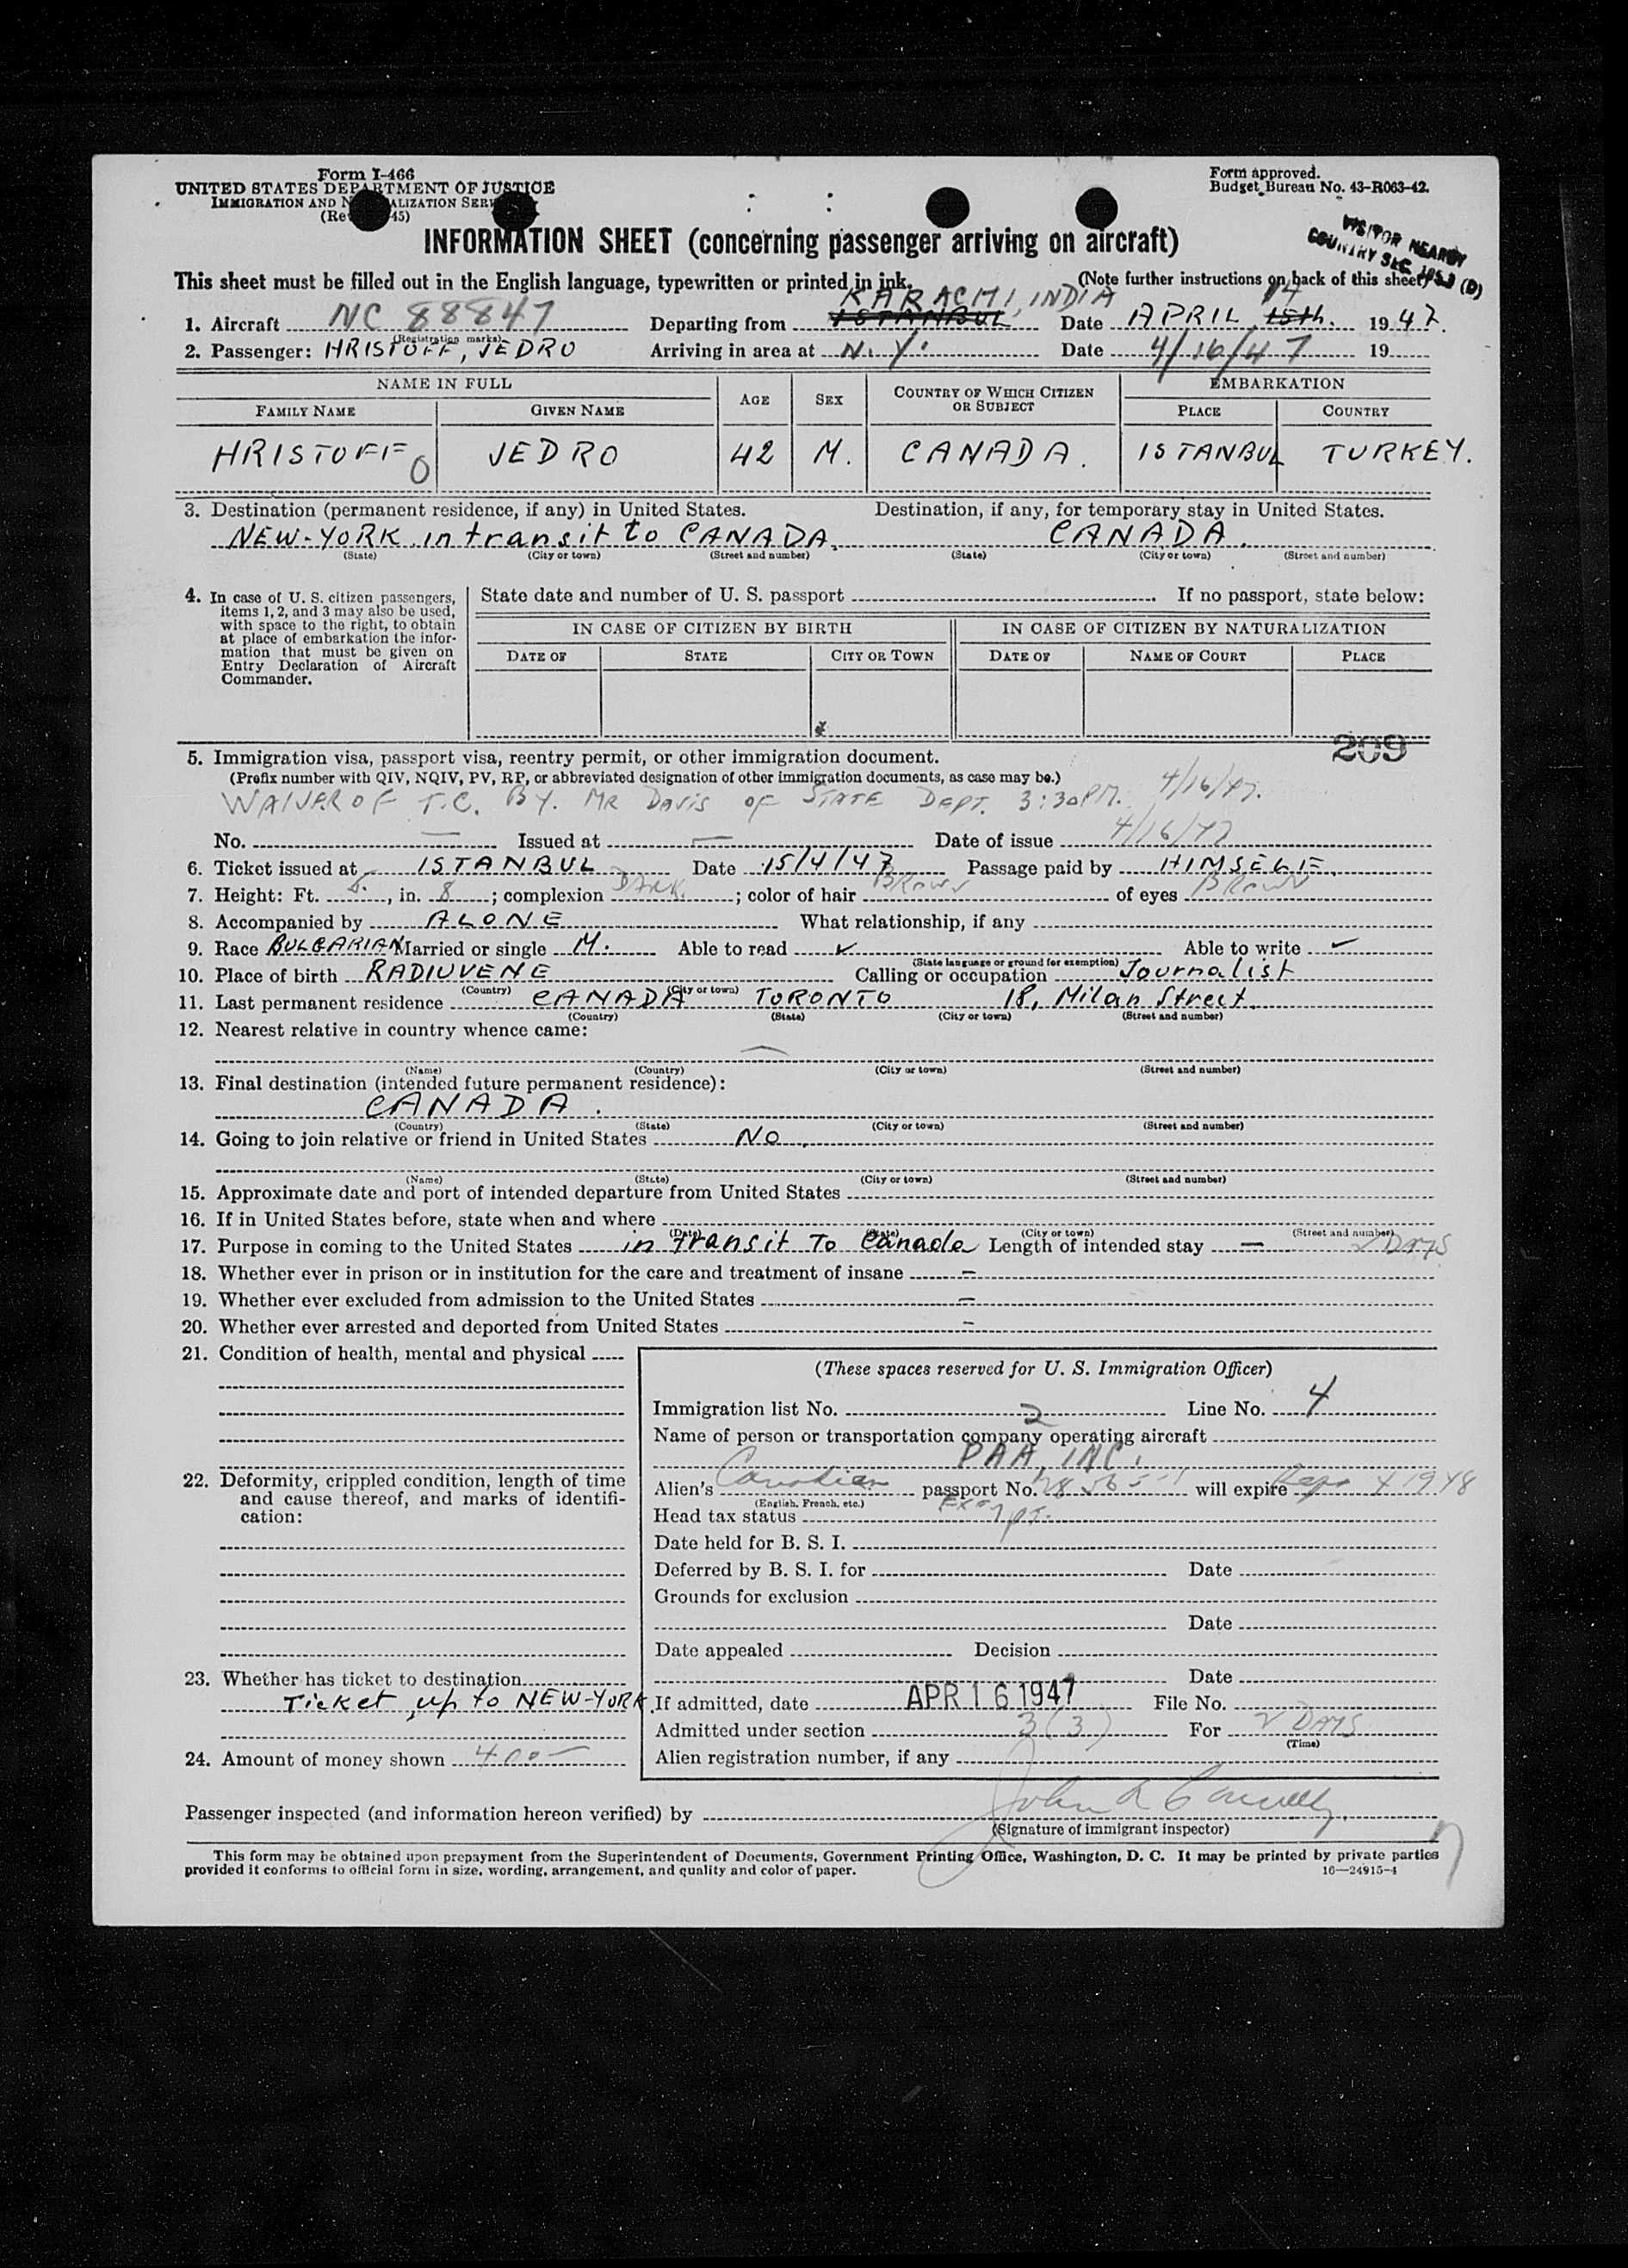 Form I-466
UNITED STATES DEPARTMENT OF JUSTICE
IMMIGRATION AND NATURALIZATION SERVICE
Form approved.
Budget Bureau No. 43-R063-42.
VISITOR NEARBY
COUNTRY SEC (D)
INFORMATION SHEET (concerning passenger arriving on aircraft)
This sheet must be filled out in the English language, typewritten or printed in ink. (Note further instructions on back of this sheet)
KARACHI, INDIA 14
1. Aircraft NC 88847 Departing from ISTANBUL Date APRIL 15th. 1947.
(Registration marks)
2. Passenger: HRISTOFF, JEDRO Arriving in area at N.Y. Date 4/16/47 19
NAME IN FULL AGE SEX COUNTRY OF WHICH CITIZEN OR SUBJECT EMBARKATION
FAMILY NAME GIVEN NAME PLACE COUNTRY
HRISTOFF O JEDRO 42 M. CANADA. ISTANBUL TURKEY.
3. Destination (permanent residence, if any) in United States. Destination, if any, for temporary stay in United States.
NEW-YORK in transit to CANADA. CANADA.
(State) (City or town) (Street and number) (State) (City or town) (Street and number)
4. In case of U. S. citizen passengers, items 1, 2, and 3 may also be used, with space to the right, to obtain at place of embarkation the information that must be given on Entry Declaration of Aircraft Commander.
State date and number of U. S. passport . If no passport, state below:
IN CASE OF CITIZEN BY BIRTH IN CASE OF CITIZEN BY NATURALIZATION
DATE OF STATE CITY OR TOWN DATE OF NAME OF COURT PLACE
209
5. Immigration visa, passport visa, reentry permit, or other immigration document.
(Prefix number with QIV, NQIV, PV, RP, or abbreviated designation of other immigration documents, as case may be.)
WAIVER OF T.C. BY. MR DAVIS OF STATE DEPT. 3:30 PM. 4/16/47.
No. — Issued at — Date of issue 4/16/47
6. Ticket issued at ISTANBUL Date 15/4/47 Passage paid by HIMSELF.
7. Height: Ft. 5, in. 8; complexion DARK.; color of hair BROWN of eyes BROWN
8. Accompanied by ALONE What relationship, if any
9. Race BULGARIAN Married or single M. Able to read ✓ Able to write ✓
(State language or ground for exemption)
10. Place of birth RADIUVENE Calling or occupation Journalist
(Country) (City or town)
11. Last permanent residence CANADA TORONTO 18, Milan Street.
(Country) (State) (City or town) (Street and number)
12. Nearest relative in country whence came:
—
(Name) (Country) (City or town) (Street and number)
13. Final destination (intended future permanent residence):
CANADA.
(Country) (State) (City or town) (Street and number)
14. Going to join relative or friend in United States NO.
(Name) (State) (City or town) (Street and number)
15. Approximate date and port of intended departure from United States
16. If in United States before, state when and where
(Date) (State) (City or town) (Street and number)
17. Purpose in coming to the United States in transit To Canada Length of intended stay — 2 DAYS
18. Whether ever in prison or in institution for the care and treatment of insane —
19. Whether ever excluded from admission to the United States —
20. Whether ever arrested and deported from United States —
21. Condition of health, mental and physical
(These spaces reserved for U. S. Immigration Officer)
Immigration list No. 2 Line No. 4
Name of person or transportation company operating aircraft
PAA, INC.
22. Deformity, crippled condition, length of time and cause thereof, and marks of identification:
Alien's Canadian passport No. will expire 4 1948
(English, French, etc.)
Head tax status Exempt.
Date held for B. S. I.
Deferred by B. S. I. for Date
Grounds for exclusion
Date
Date appealed Decision
23. Whether has ticket to destination
Date
Ticket up to NEW-YORK.
If admitted, date APR 16 1947 File No.
Admitted under section 3(3) For 2 DAYS
(Time)
24. Amount of money shown 400—
Alien registration number, if any
Passenger inspected (and information hereon verified) by
(Signature of immigrant inspector)
This form may be obtained upon prepayment from the Superintendent of Documents, Government Printing Office, Washington, D. C. It may be printed by private parties
provided it conforms to official form in size, wording, arrangement, and quality and color of paper. 16—24915-4